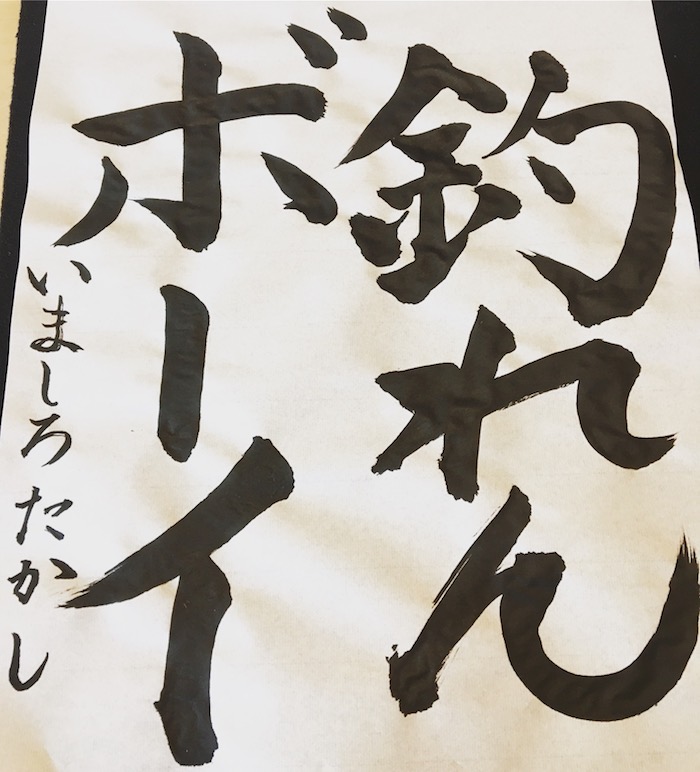 釣れん
ボーイ
いましろたかし